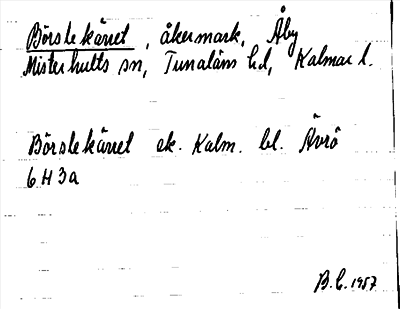 Börslekärret, åkermark, Åby
Misterhults sn, Tunaläns hd, Kalmar l.
Börslekärret ek. Kalm. bl. Ävrö
6H3a
B.L. 1957